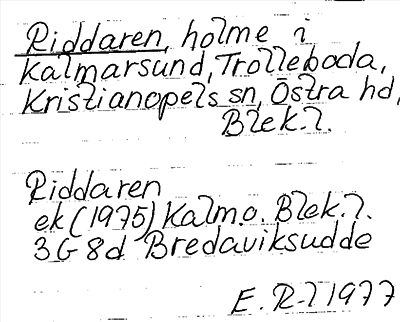 Riddaren, holme i
Kalmarsund, Trolleboda,
Kristianopels sn, Östra hd,
Blek.l.
Riddaren
ek (1975) Kalm.o. Blek.l.
3G 8d Bredaviksudde
E. R-l 1977